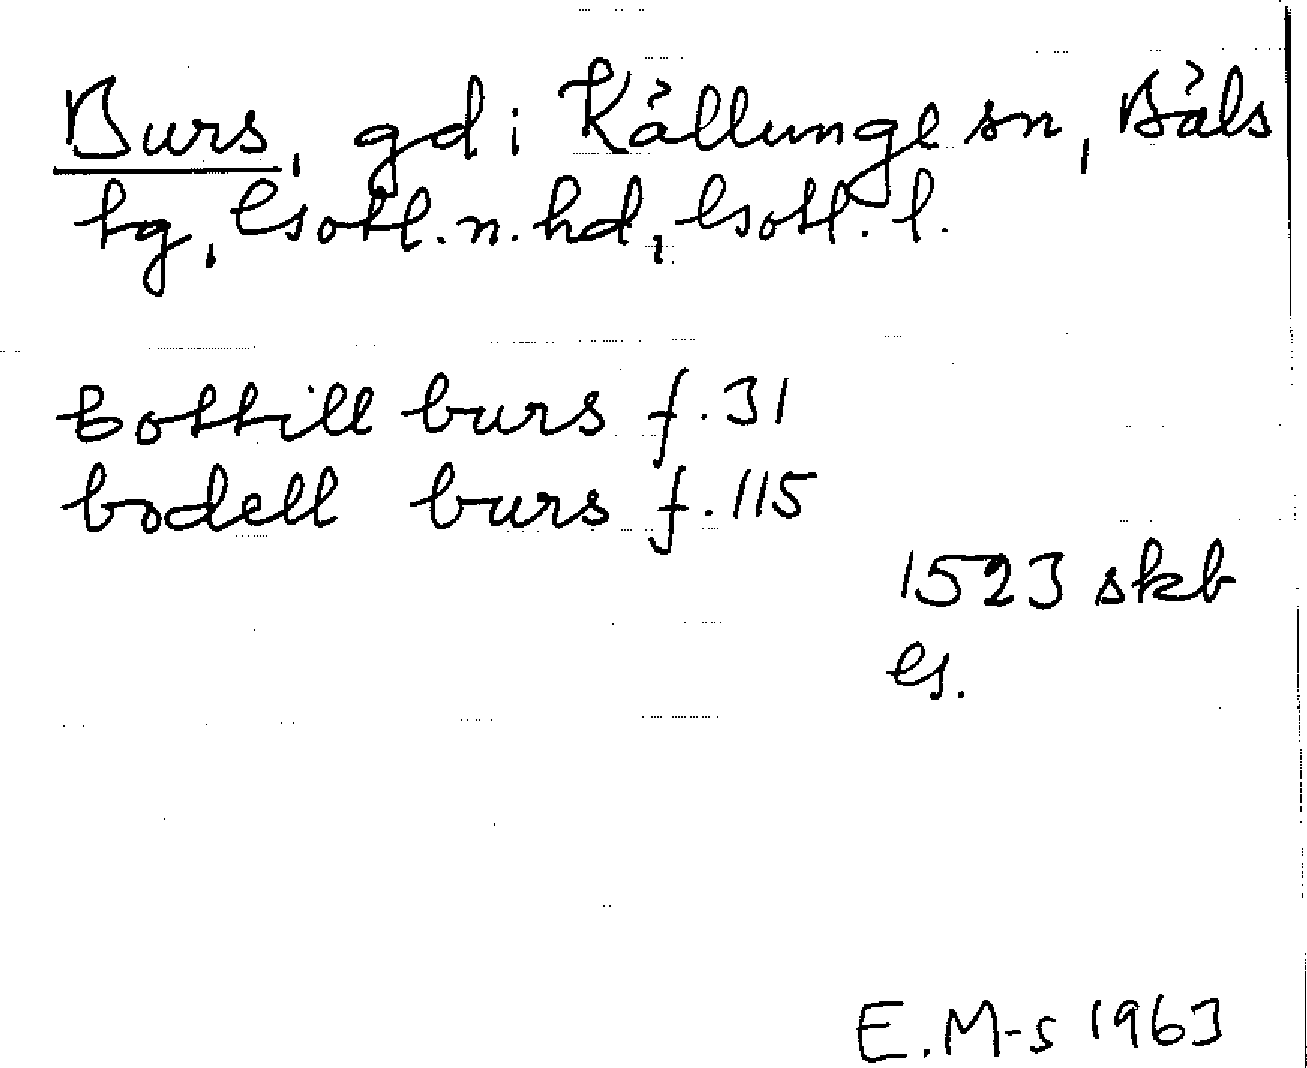 Burs, gd i Källunge sn, Bäls
tg, Gotl. n. hd, Gotl. l.
bottill burs f. 31
bodell burs f. 115
1523 skb
G.
E. M-s 1963